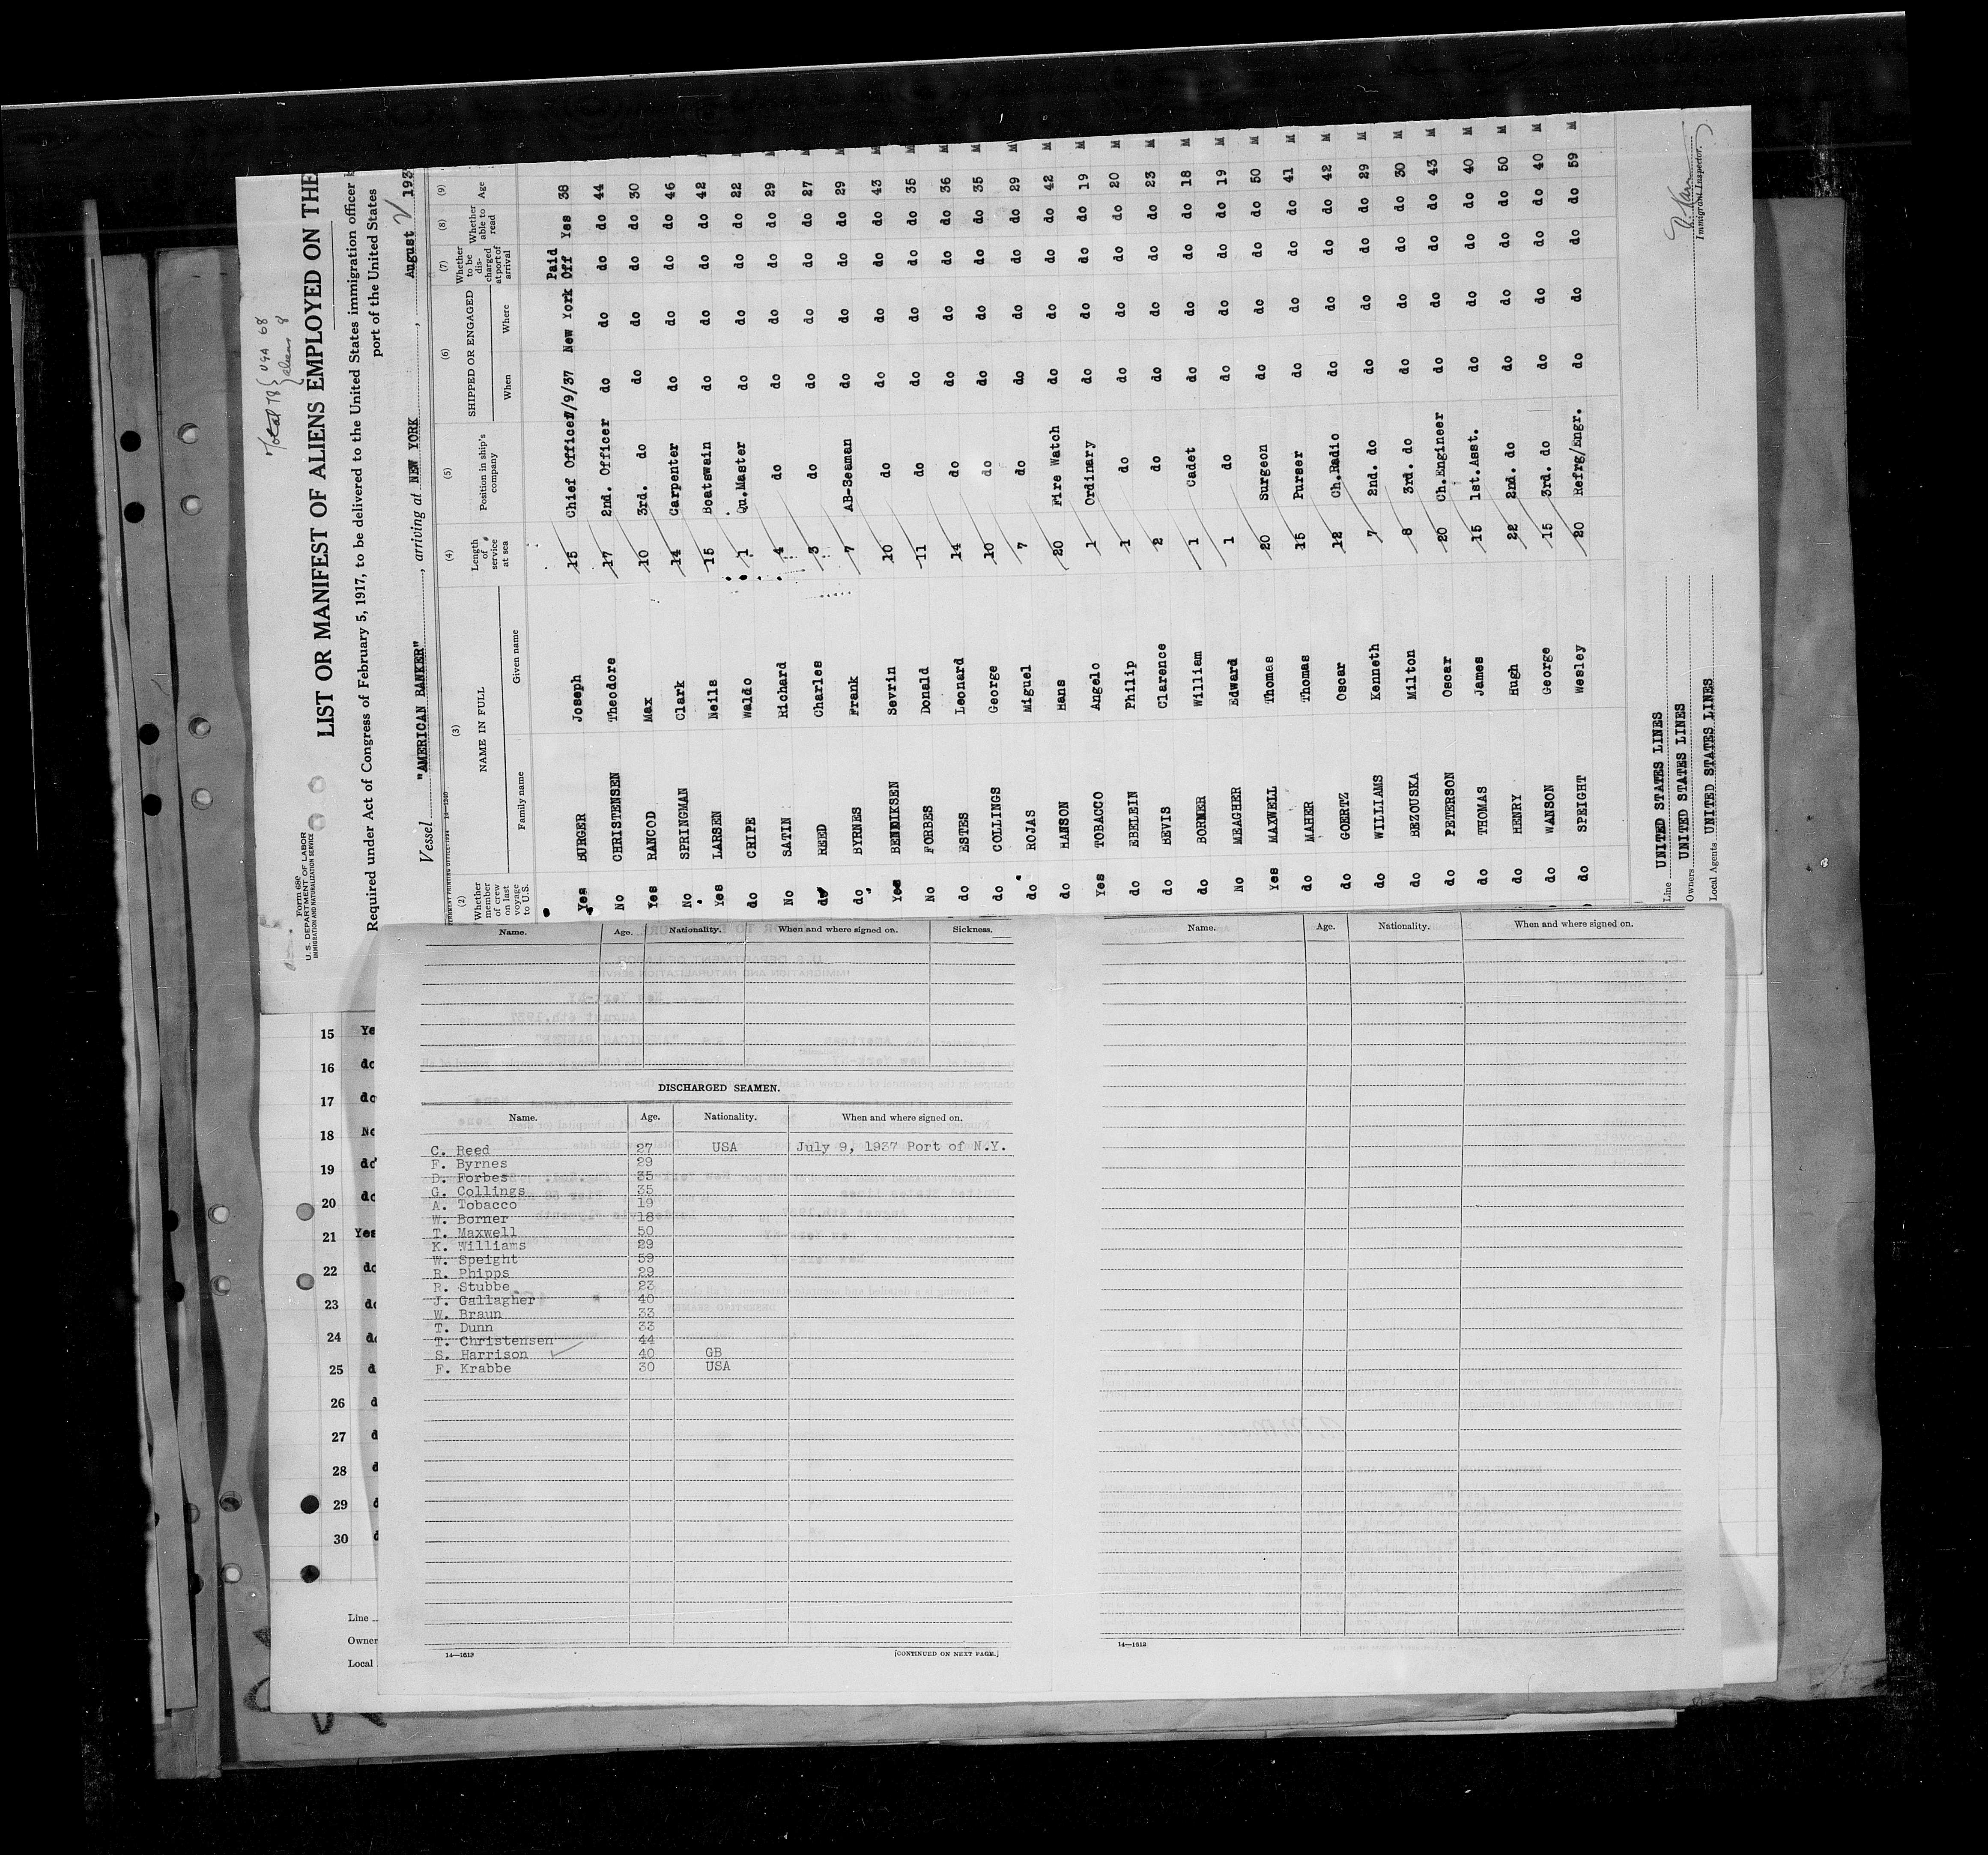 Total 78 { USA 68
aliens 8
Form 680
U. S. DEPARTMENT OF LABOR
IMMIGRATION AND NATURALIZATION SERVICE
LIST OR MANIFEST OF ALIENS EMPLOYED ON THE
Required under Act of Congress of February 5, 1917, to be delivered to the United States immigration officer
port of the United States
Vessel "AMERICAN BANKER", arriving at NEW YORK, August 193
(2) (3) (4) (5) (6) (7) (8) (9)
Whether member of crew on last voyage to U.S. NAME IN FULL Family name Given name Length of service at sea Position in ship's company SHIPPED OR ENGAGED When Where Whether to be discharged at port of arrival Whether able to read Age
Yes BURGER Joseph 15 Chief Officer 7/9/37 New York Paid Off Yes 38
No CHRISTENSEN Theodore 17 2nd. Officer do do do do 44 M
Yes RANCOD Max 10 3rd. do do do do do 30 M
No SPRINGMAN Clark 14 Carpenter do do do do 46 M
Yes LARSEN Neils 15 Boatswain do do do do 42 M
do CRIPE Waldo 1 Qu.Master do do do do 22 M
No SATIN Richard 4 do do do do do 29 M
do REED Charles 3 do do do do do 27 M
do BYRNES Frank 7 AB-Seaman do do do do 29 M
Yes BENDIKSEN Sevrin 10 do do do do do 43 M
No FORBES Donald 11 do do do do do 35 M
do ESTES Leonard 14 do do do do do 36 M
do COLLINGS George 10 do do do do do 35 M
do ROJAS Miguel 7 do do do do do 29 M
do HANSON Hans 20 Fire Watch do do do do 42 M
Yes TOBACCO Angelo 1 Ordinary do do do do 19 M
do EBELEIN Philip 1 do do do do do 20 M
do BEVIS Clarence 2 do do do do do 23 M
do BORNER William 1 Cadet do do do do 18 M
No MEAGHER Edward 1 do do do do do 19 M
Yes MAXWELL Thomas 20 Surgeon do do do do 50 M
do MAHER Thomas 15 Purser do do do do 41 M
do GOERTZ Oscar 12 Ch.Radio do do do do 42 M
do WILLIAMS Kenneth 7 2nd. do do do do do 29 M
do BEZOUSKA Milton 8 3rd. do do do do do 30 M
do PETERSON Oscar 20 Ch.Engineer do do do do 43 M
do THOMAS James 15 1st.Asst. do do do do 40 M
do HENRY Hugh 22 2nd. do do do do do 50 M
do WANSON George 15 3rd. do do do do do 40 M
do SPEIGHT Wesley 20 Refrg/Engr. do do do do 59 M
Line UNITED STATES LINES
Owners UNITED STATES LINES
Local Agents UNITED STATES LINES
Immigrant Inspector.
Name. Age. Nationality. When and where signed on. Sickness.
DISCHARGED SEAMEN.
Name. Age. Nationality. When and where signed on.
C. Reed 27 USA July 9, 1937 Port of N.Y.
F. Byrnes 29
D. Forbes 35
G. Collings 35
A. Tobacco 19
W. Borner 18
T. Maxwell 50
K. Williams 29
W. Speight 59
R. Phipps 29
R. Stubbe 23
J. Gallagher 40
W. Braun 33
T. Dunn 33
T. Christensen 44
S. Harrison 40 GB
F. Krabbe 30 USA
14—1613
[CONTINUED ON NEXT PAGE.]
Name. Age. Nationality. When and where signed on.
14—1613
15 Ye
16 do
17 do
18 No
19 do
20 do
21 Yes
22 do
23 do
24 d
25 d
26 d
27 d
28 d
29 d
30 d
Line
Owner
Local